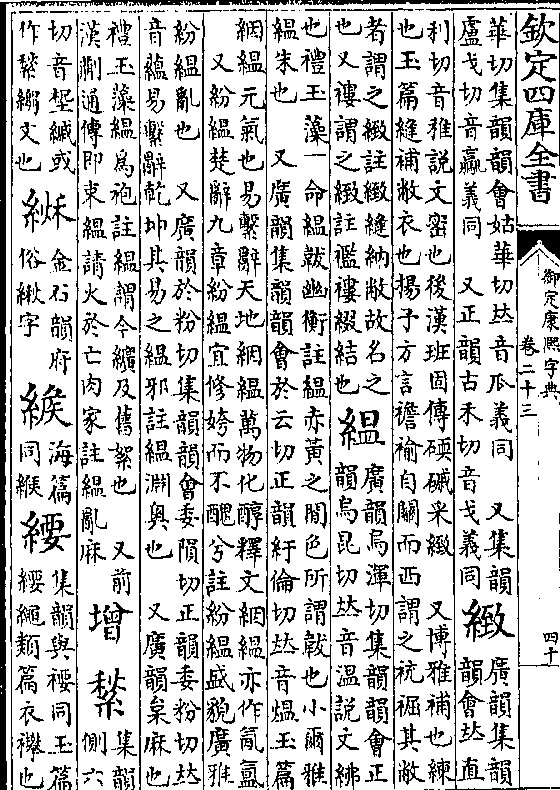 欽定四庫全書
御定康熙字典
卷二十三
四十
華切集韻韻會姑華切𠀤音瓜義同　又集韻
盧戈切音驘義同　又正韻古禾切音戈義同
緻
廣韻集韻
韻會𠀤直
利切音稚説文密也後漢班固傳碝磩采緻　又博雅補也練
也玉篇縫補敝衣也揚子方言襜褕自關而西謂之其敝
者謂之緻註緻縫納敝故名之
也又褸謂之緻註襤褸綴結也
縕
廣韻烏渾切集韻韻會正
韻烏昆切𠀤音温説文紼
也禮玉藻一命縕韍幽衡註縕赤黃之閒色所謂韍也小爾雅
縕朱也　又廣韻集韻韻會於云切正韻紆倫切𠀤音熅玉篇
絪縕元氣也易繫辭天地絪縕萬物化醇釋文絪縕亦作氤氳
又紛縕楚辭九章紛縕宜修姱而不醜兮註紛縕盛貌廣雅
紛縕亂也　又廣韻於粉切集韻韻會委隕切正韻委粉切𠀤
音蘊易繫辭乾坤其易之縕邪註縕淵奧也　又廣韻枲麻也
禮玉藻縕爲袍註縕謂今纊及舊絮也　又前
漢蒯通傳即束縕請火於亡肉家註縕亂麻
增
集韻
側六
切音埱緎或
作縐文也
金石韻府
俗緻字
緱
海篇
同緱
緮
集韻與褸同玉篇
繩類篇衣襻也